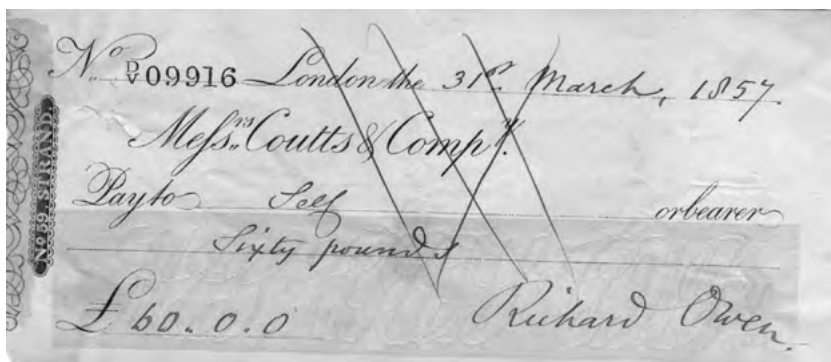 No. D/V 09916 London the 31st. March, 1857.
Messrs. Coutts & Compy.
Pay to Self or bearer
Sixty pounds
£ 60.. 0. 0
Richard Owen.
No 59, STRAND.